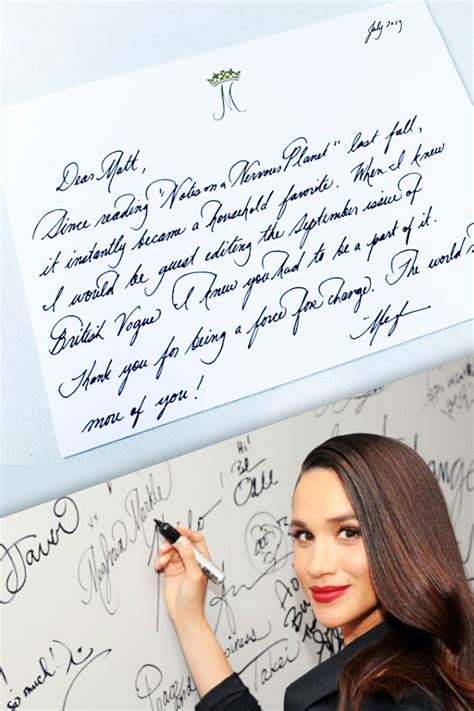 July 2019
M
Dear Matt,
Since reading "Notes on a Nervous Planet" last fall,
it instantly became a household favorite. When I knew
I would be guest editing the September issue of
British Vogue I knew you had to be a part of it.
Thank you for being a force for change. The world
more of you!
-Meg
Hi!
Meghan Markle
Peace
and
Happiness
so much!